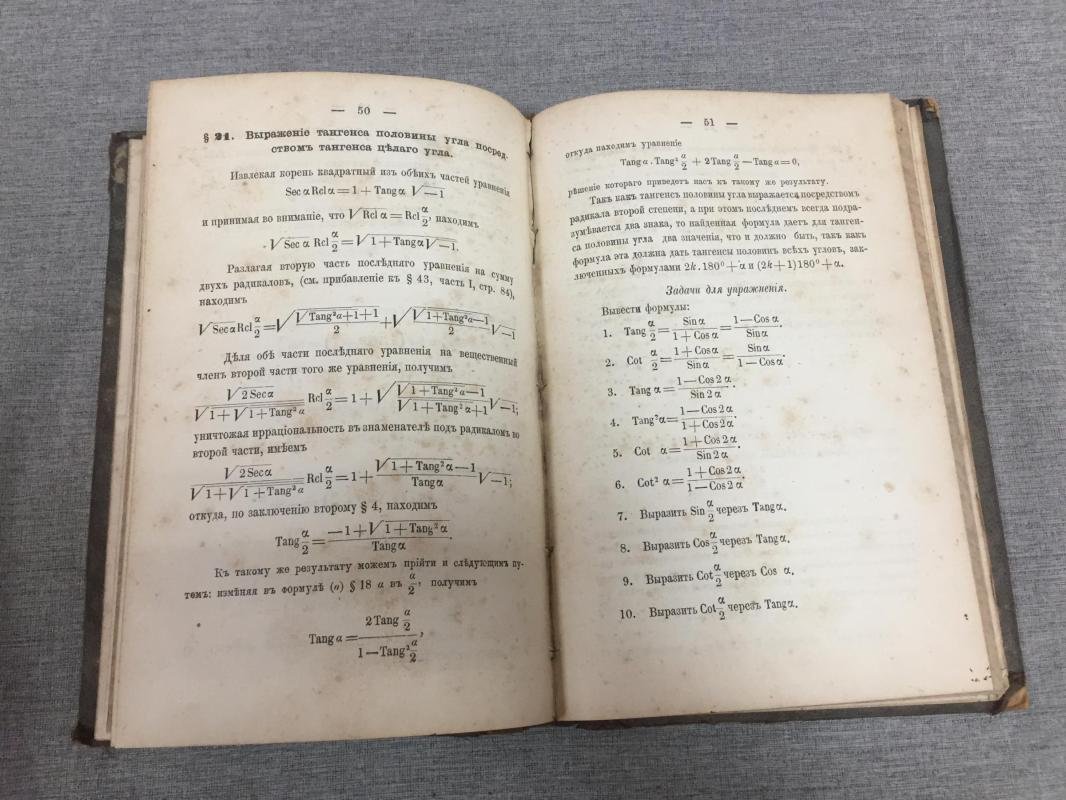 — 50 —
§ 21. Выраженіе тангенса половины угла посред-
ствомъ тангенса цѣлаго угла.
Извлекая корень квадратный изъ обѣихъ частей уравненія
Sec α Rcl α = 1 + Tang α √−1
и принимая во вниманіе, что √Rcl α = Rcl α/2, находимъ
√Sec α Rcl α/2 = √1 + Tang α √−1.
Разлагая вторую часть послѣдняго уравненія на сумму
двухъ радикаловъ, (см. прибавленіе къ § 43, часть I, стр. 84),
находимъ
√Sec α Rcl α/2 = √(√(Tang²α+1)+1)/2 + √(√(1+Tang²α)−1)/2 √−1
Дѣля обѣ части послѣдняго уравненія на вещественный
членъ второй части того же уравненія, получимъ
√2 Sec α / √(1+√(1+Tang²α)) Rcl α/2 = 1 + √(√(1+Tang²α)−1)/(√(1+Tang²α)+1) √−1;
уничтожая ирраціональность въ знаменателѣ подъ радикаломъ во
второй части, имѣемъ
√2 Sec α / √(1+√(1+Tang²α)) Rcl α/2 = 1 + (√(1+Tang²α)−1)/Tang α √−1;
откуда, по заключенію второму § 4, находимъ
Tang α/2 = (−1+√(1+Tang²α))/Tang α.
Къ такому же результату можемъ прійти и слѣдующимъ пу-
темъ: измѣняя въ формулѣ (n) § 18 α въ α/2, получимъ
Tang α = 2 Tang α/2 / (1 − Tang² α/2),
— 51 —
откуда находимъ уравненіе
Tang α . Tang² α/2 + 2 Tang α/2 − Tang α = 0,
рѣшеніе котораго приведетъ насъ къ такому же результату.
Такъ какъ тангенсъ половины угла выражается посредствомъ
радикала второй степени, а при этомъ послѣднемъ всегда подра-
зумѣвается два знака, то найденная формула даетъ для танген-
са половины угла два значенія, что и должно быть, такъ какъ
формула эта должна дать тангенсы половинъ всѣхъ угловъ, зак-
люченныхъ формулами 2k . 180⁰ + α и (2k + 1) 180⁰ + α.
Задачи для упражненія.
Вывести формулы:
1. Tang α/2 = Sin α/(1 + Cos α) = (1 − Cos α)/Sin α.
2. Cot α/2 = (1 + Cos α)/Sin α = Sin α/(1 − Cos α).
3. Tang α = (1 − Cos 2 α)/Sin 2 α.
4. Tang²α = (1 − Cos 2 α)/(1 + Cos 2 α).
5. Cot α = (1 + Cos 2 α)/Sin 2 α.
6. Cot² α = (1 + Cos 2 α)/(1 − Cos 2 α).
7. Выразить Sin α/2 черезъ Tang α.
8. Выразить Cos α/2 черезъ Tang α.
9. Выразить Cot α/2 черезъ Cos α.
10. Выразить Cot α/2 черезъ Tang α.